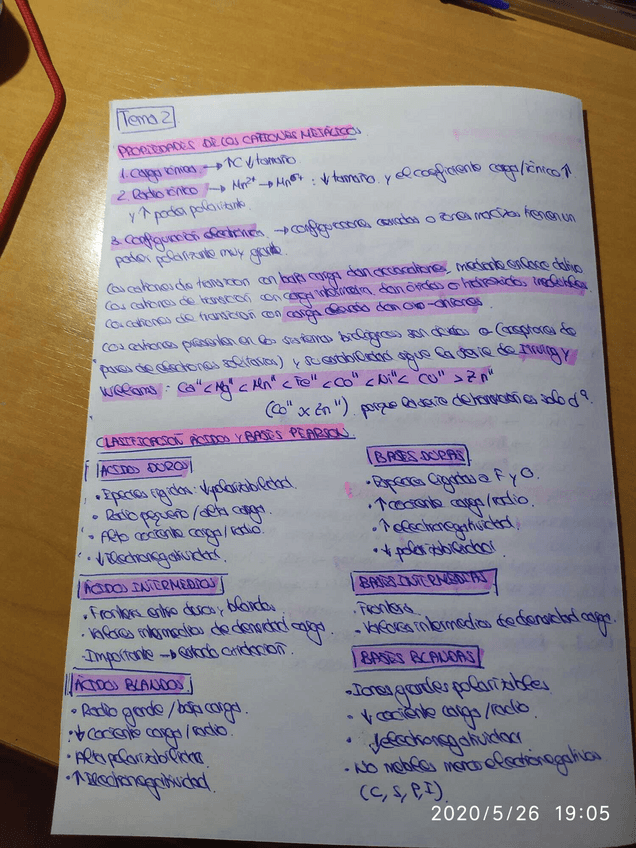 Tema 2
PROPIEDADES DE LOS CATIONES METÁLICOS
1. Carga iónica → ↑C ↓tamaño
2. Radio iónico → Mn²⁺ → Mn⁶⁺ : ↓tamaño y el coeficiente carga/iónico ↑
y ↑ poder polarizante
3. Configuración electrónica → configuraciones cerradas o iones macizos tienen un
poder polarizante muy grande.
Los cationes de transición con baja carga dan mediante enlace dativo
Los cationes de transición con carga intermedia dan óxidos o hidróxidos insolubles.
Los cationes de transición con carga elevada dan oxo-aniones.
Los cationes presentan en los sistemas biológicos son ácidos a (aceptores de
pares de electrones solitarios) y su estabilidad sigue la serie de Irving y
Williams : Ca" < Mg" < Mn" < Fe" < Co" < Ni" < Cu" > Zn"
(Co" x Zn") porque la serie de transición es solo d⁹.
CLASIFICACIÓN ÁCIDOS Y BASES PEARSON
ÁCIDOS DUROS
• Especies rígidas: ↓polarizabilidad.
• Radio pequeño / alta carga.
• Alto cociente carga/radio.
• ↓Electronegatividad.
BASES DURAS
• Especies ligadas a F y O.
• ↑cociente carga/radio.
• ↑electronegatividad.
• ↓polarizabilidad
ÁCIDOS INTERMEDIOS
• Frontera entre duros y blandos
• Valores intermedios de densidad carga.
• Importante → estado oxidación.
BASES INTERMEDIAS
• Frontera
• Valores intermedios de densidad carga.
ÁCIDOS BLANDOS
• Radio grande / baja carga.
• ↓ cociente carga/radio.
• Alta polarizabilidad
• ↑Electronegatividad.
BASES BLANDAS
• Iones grandes polarizables
• ↓ cociente carga/radio.
• ↓electronegatividad
• No metales menos electronegativos
(C, S, P, I)
2020/5/26 19:05